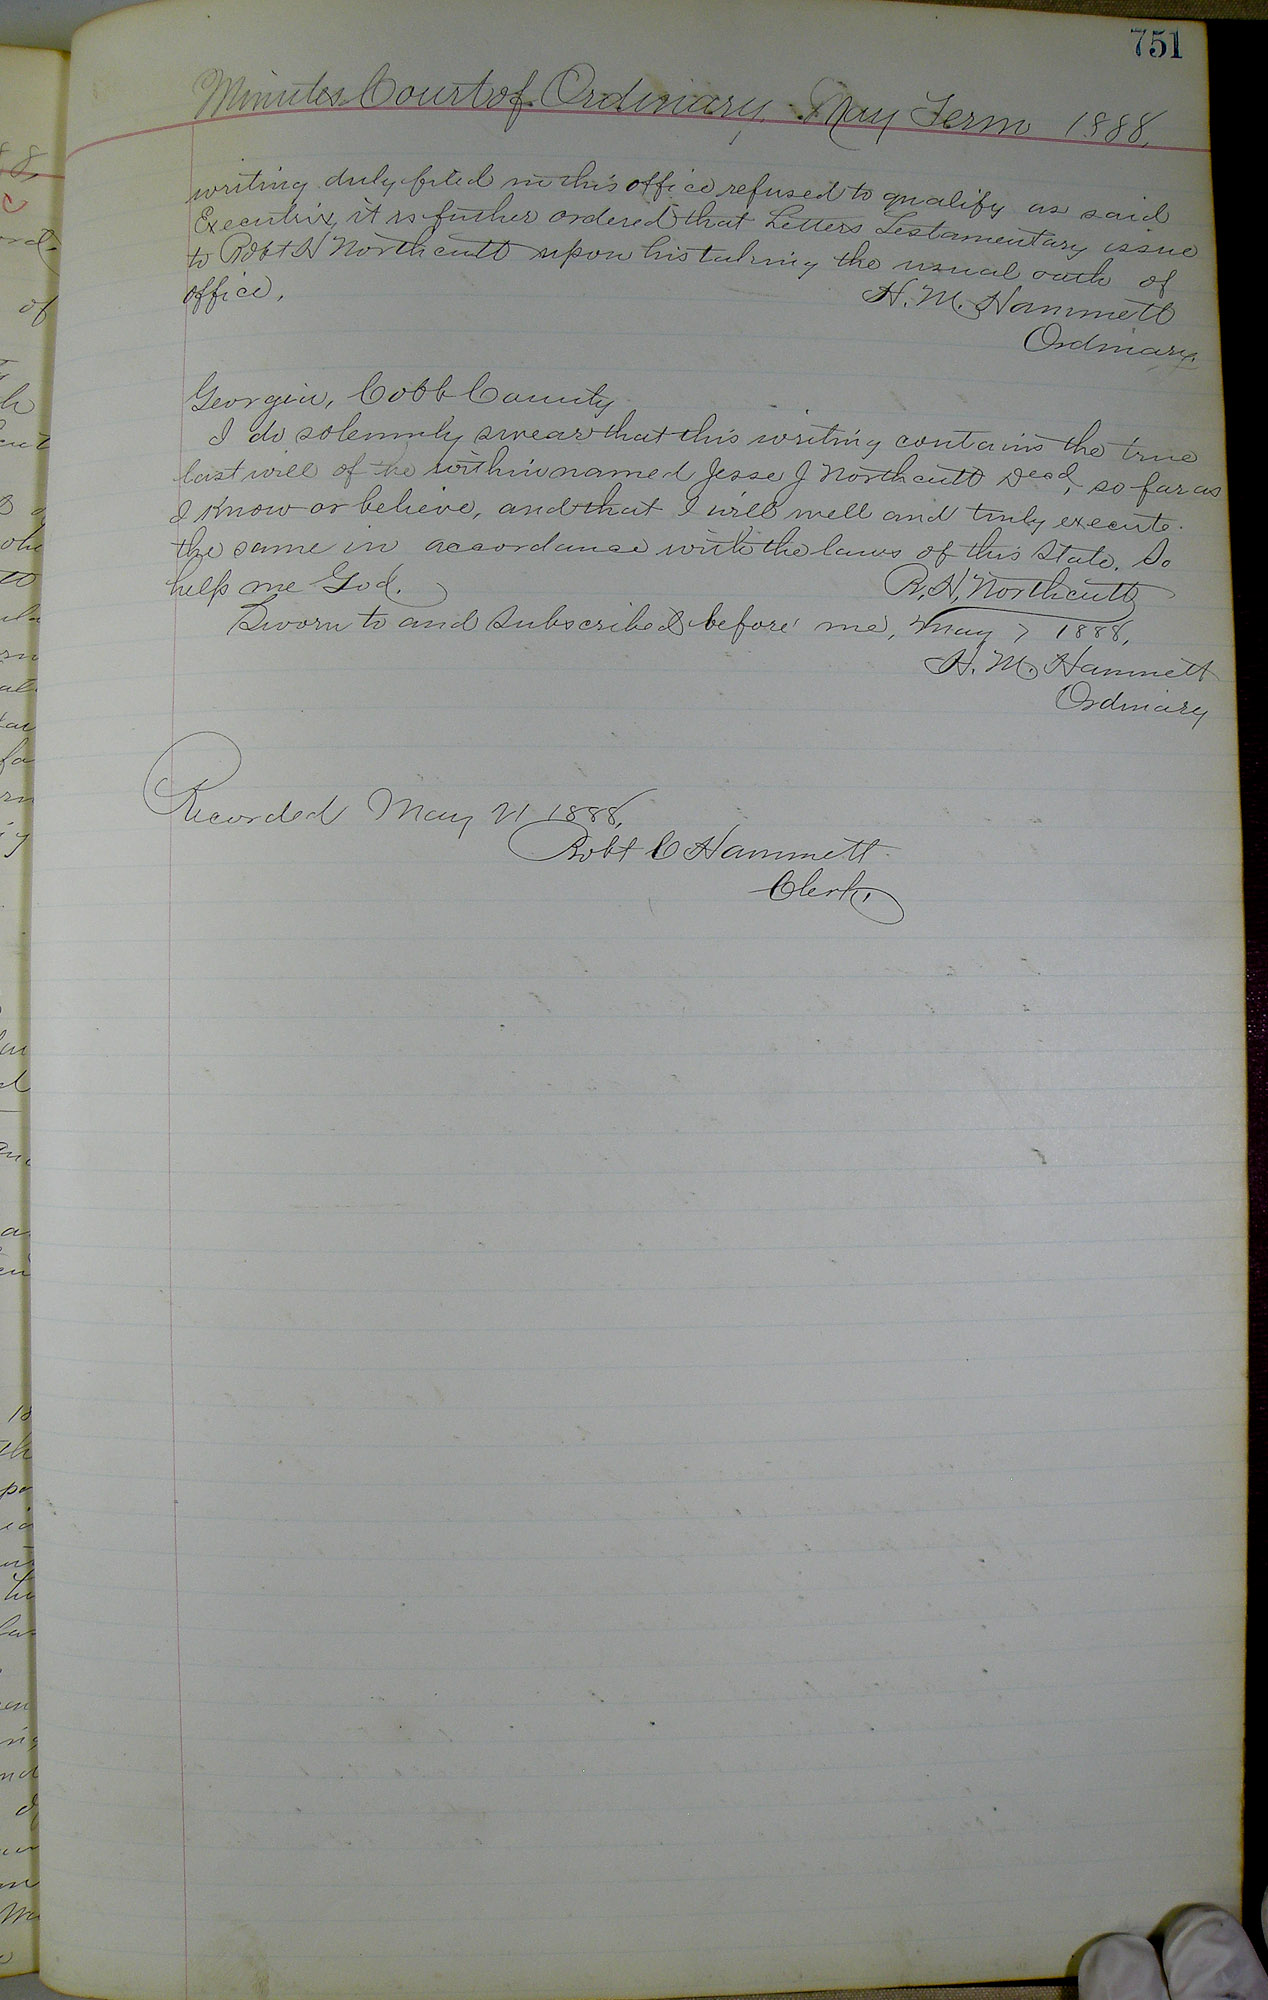 751
Minutes Court of Ordinary, May Term 1888,
writing duly filed in this office refused to qualify as said
Executrix, it is futher ordered that Letters Testamentary issue
to Robt H Northcutt upon his taking the usual oath of
office,
H. M. Hammett
Ordinary
Georgia, Cobb County
I do solemnly swear that this writing contains the true
last will of the within named Jesse J Northcutt Dead, so far as
I know or believe, and that I will well and truly execute
the same in accordance with the laws of this State. So
help me God.
R, H, Northcutt
Sworn to and subscribed before me, May 7 1888,
H. M. Hammett
Ordinary
Recorded May 21 1888,
Robt C Hammett
Clerk,